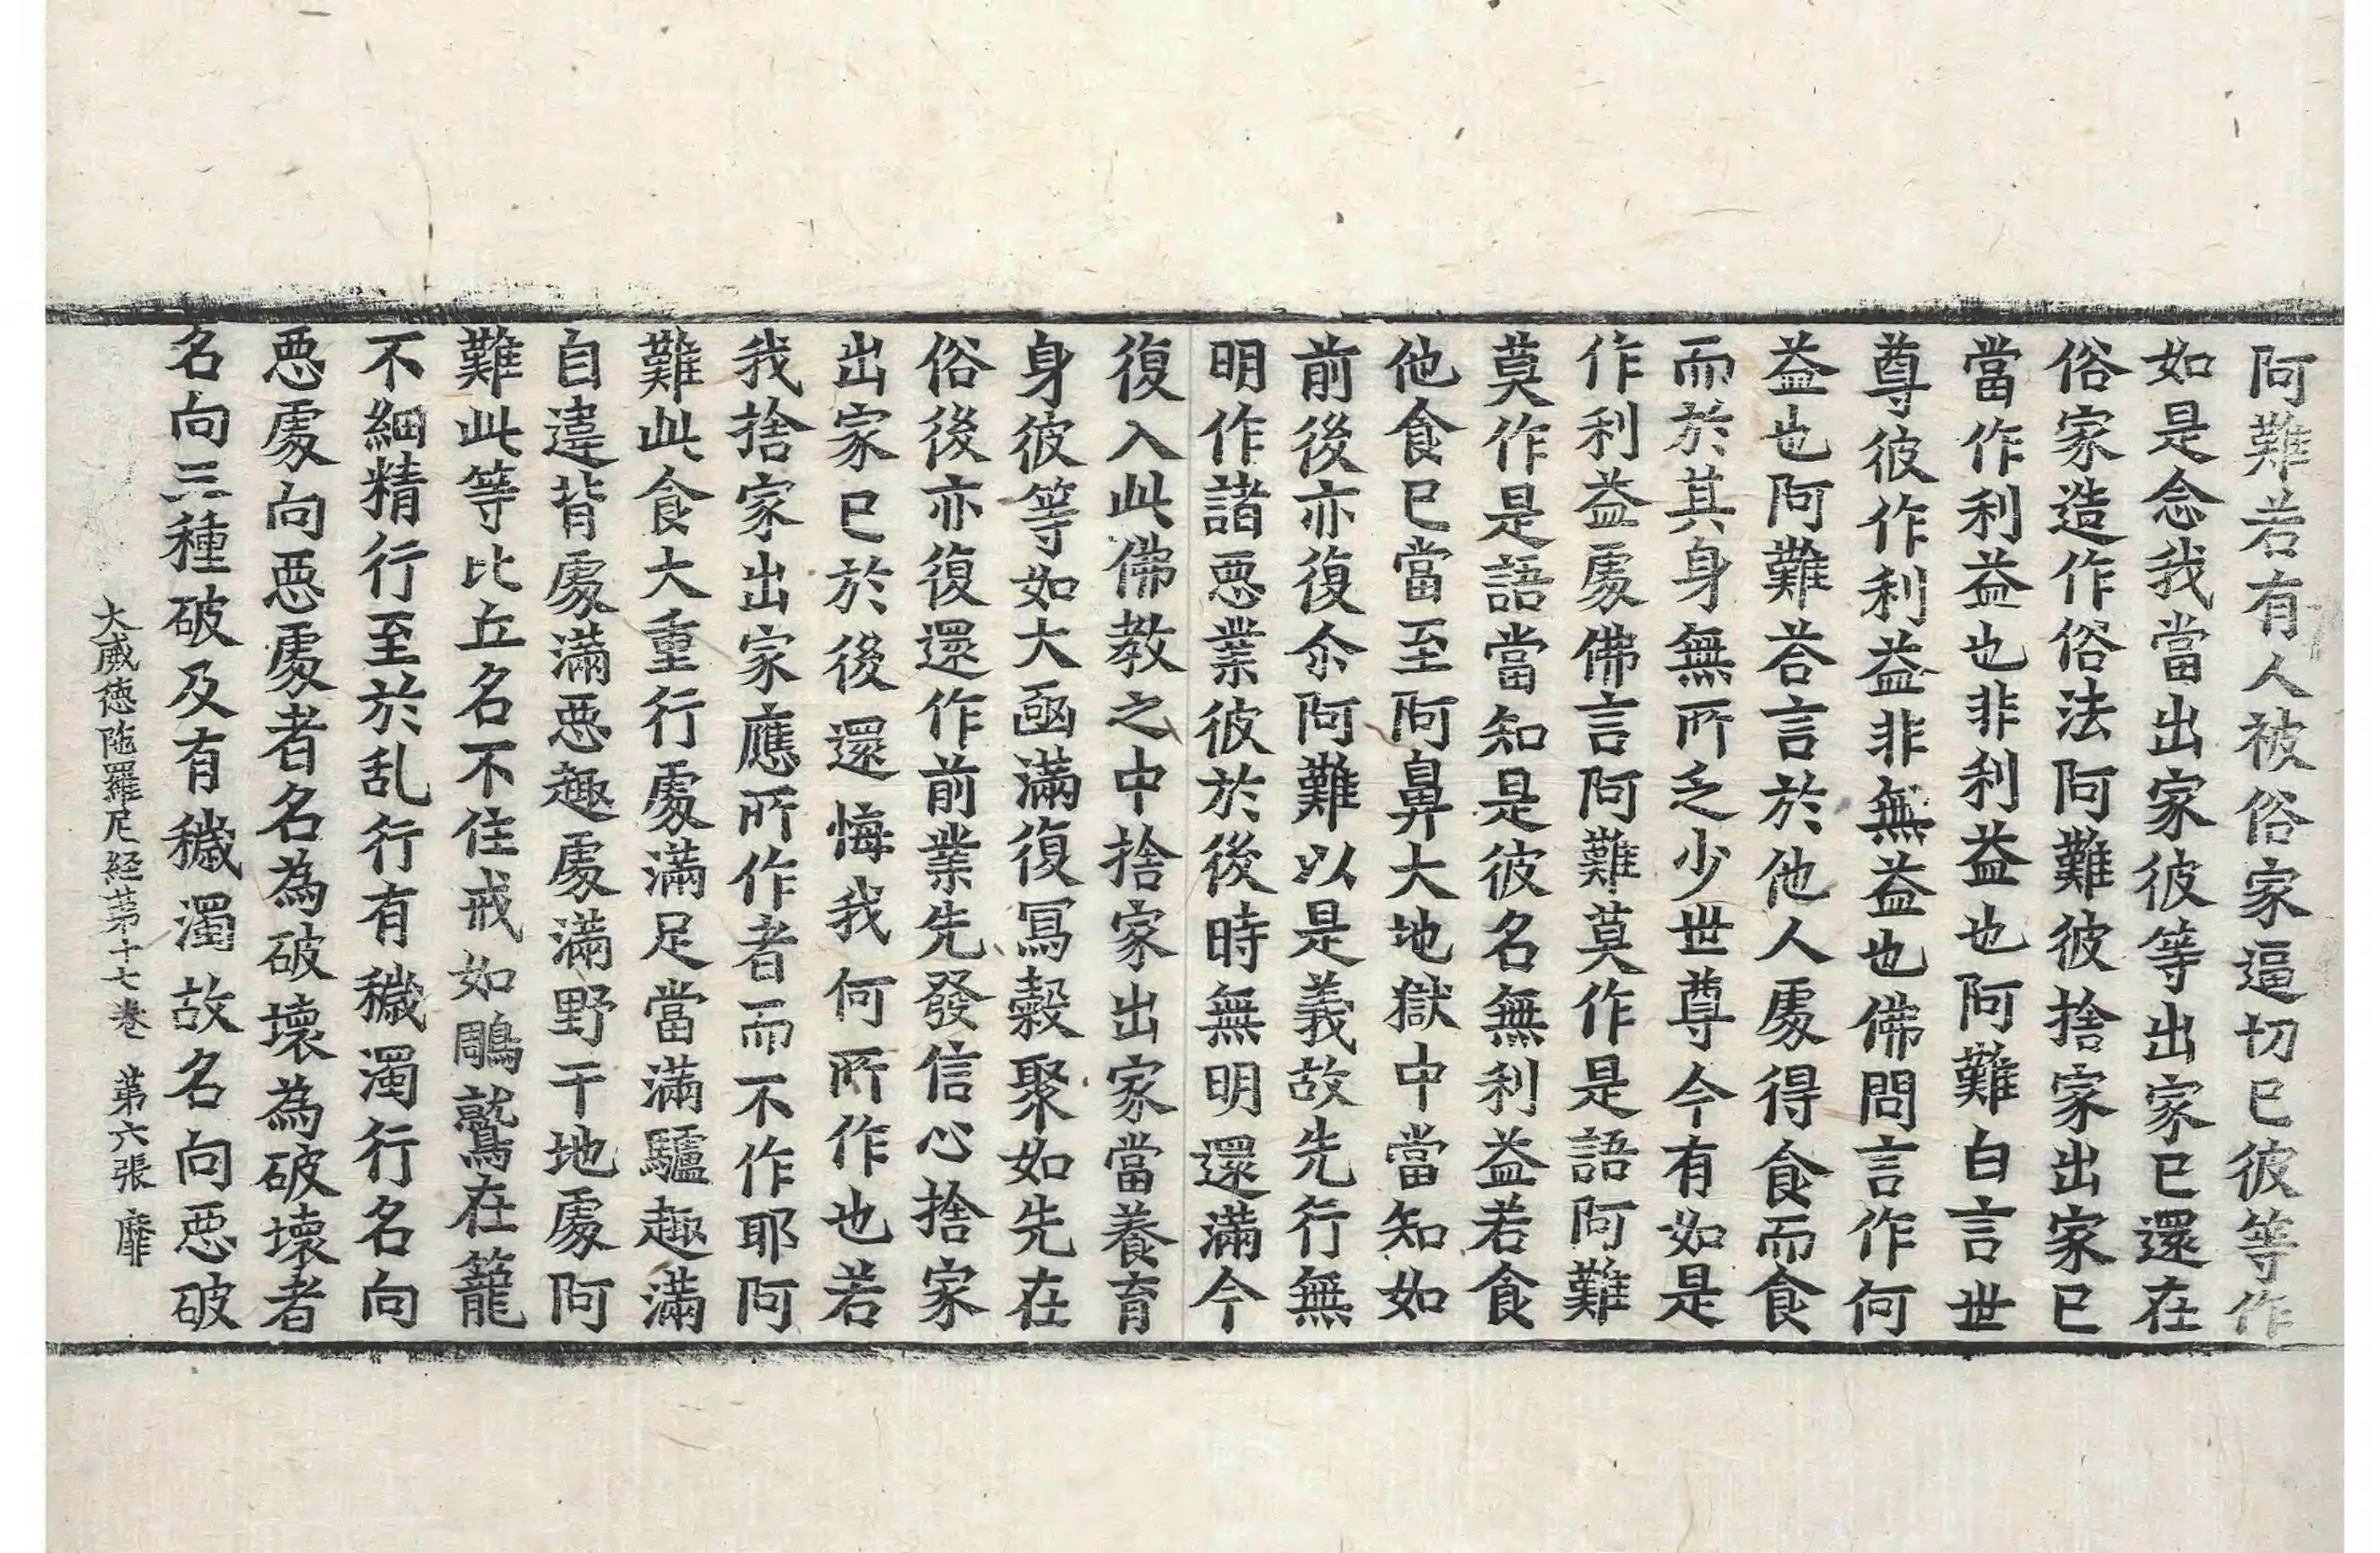 阿難若有人被俗家逼切已彼等作
如是念我當出家彼等出家已還在
俗家造作俗法阿難彼捨家出家已
當作利益也非利益也阿難白言世
尊彼作利益非無益也佛問言作何
益也阿難荅言於他人處得食而食
而於其身無所乏少世尊今有如是
作利益處佛言阿難莫作是語阿難
莫作是語當知是彼名無利益若食
他食已當至阿鼻大地獄中當知如
前後亦復尒阿難以是義故先行無
明作諸惡業彼於後時無明還滿今
復入此佛教之中捨家出家當養育
身彼等如大函滿復冩穀聚如先在
俗後亦復還作前業先發信心捨家
出家已於後還悔我何所作也若
我捨家出家應所作者而不作耶阿
難此食大重行處滿足當滿驢趣滿
自違背處滿惡趣處滿野干地處阿
難此等比丘名不住戒如鵰鷲在籠
不細精行至於乱行有穢濁行名向
惡處向惡處者名為破壞為破壞者
名向三種破及有穢濁故名向惡破
大威德陁羅尼経苐十七卷 第六張 靡